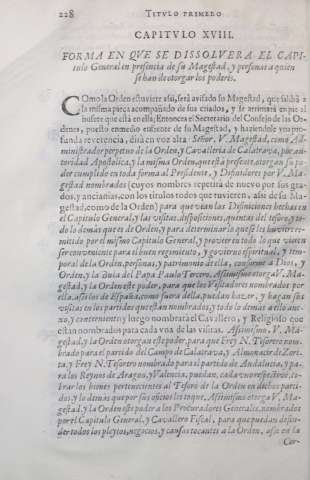 228 TITVLO PRIMERO
CAPITVLO XVIII.
FORMA EN QVE SE DISSOLVERA EL CAPI-
tulo General en presencia de su Magestad, y personas a quien
se han de otorgar los poderes.
COmo la Orden estuviere assi, serà avisado su Magestad, que saldrà a
la misma pieça acompañado de sus criados, y se arrimarà en pie al
bufete que està en ella; Entonces el Secretario del Consejo de las Or-
denes, puesto enmedio enfrente de su Magestad, y haziendole vna pro-
funda reverencia, dirà en voz alta: Señor, V. Magestad, como Ad-
ministrador perpetuo de la Orden, y Cavalleria de Calatrava, por au-
toridad Apostolica, y la misma Orden, que està presente, otorgan su po-
der cumplido en toda forma al Presidente, y Difinidores por V. Ma-
gestad nombrados (cuyos nombres repetirà de nuevo por sus gra-
dos, y ancianias, con los titulos todos que tuvieren, assi de su Ma-
gestad, como de la Orden) para que vean las Difiniciones hechas en
el Capitulo General, y las visitas, disposiciones, quentas del tesoro, y to-
do lo demàs que es de Orden, y para determinar lo que les huviere re-
mitido por el mismo Capitulo General, y proveer en todo lo que vieren
ser conveniente para el buen regimiento, y govierno espiritual, y tem-
poral de la Orden, personas, y patrimonio de ella, conforme a Dios, y
Orden, y la Bula del Papa Paulo Tercero. Assimismo otorga V. Ma-
gestad, y la Orden este poder, para que los Visitadores nombrados por
ella, assi los de España, como fuera della, puedan hazer, y hagan sus
visitas en los partidos que estàn nombrados, y todo lo demàs a ello ane-
xo, y concerniente; y luego nombrarà el Cavallero, y Religioso que
estàn nombrados para cada vna de las visitas. Assimismo, V. Ma-
gestad, y la Orden otorgan este poder, para que Frey N. Tesorero nom-
brado para el partido del Campo de Calatrava, y Almonacir de Zori-
ta, y Frey N. Tesorero nombrado para el partido de Andaluzia, y pa-
ra los Reynos de Aragon, y Valencia, puedan, cada vno respective, co-
brar los bienes pertenecientes al Tesoro de la Orden en dichos parti-
dos, y lo demàs que por sus oficios les toque. Assimismo otorga V. Ma-
gestad, y la Orden este poder a los Procuradores Generales, nombrados
por el Capitulo General, y Cavallero Fiscal, para que puedan defen-
der todos los pleytos, negocios, y causas tocantes a la Orden, assi en la
Cor-